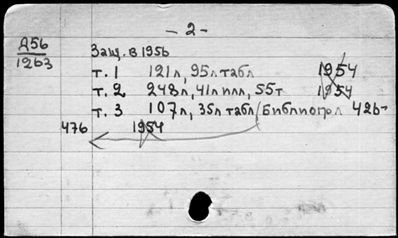 - 2 -
Д56
1263
Защ. в 1956
т. 1 121л, 95л табл 1954
т. 2 248л, 41л илл, 55т 1954
т. 3 107л, 35л табл (Библиогр. 426-
476 1954